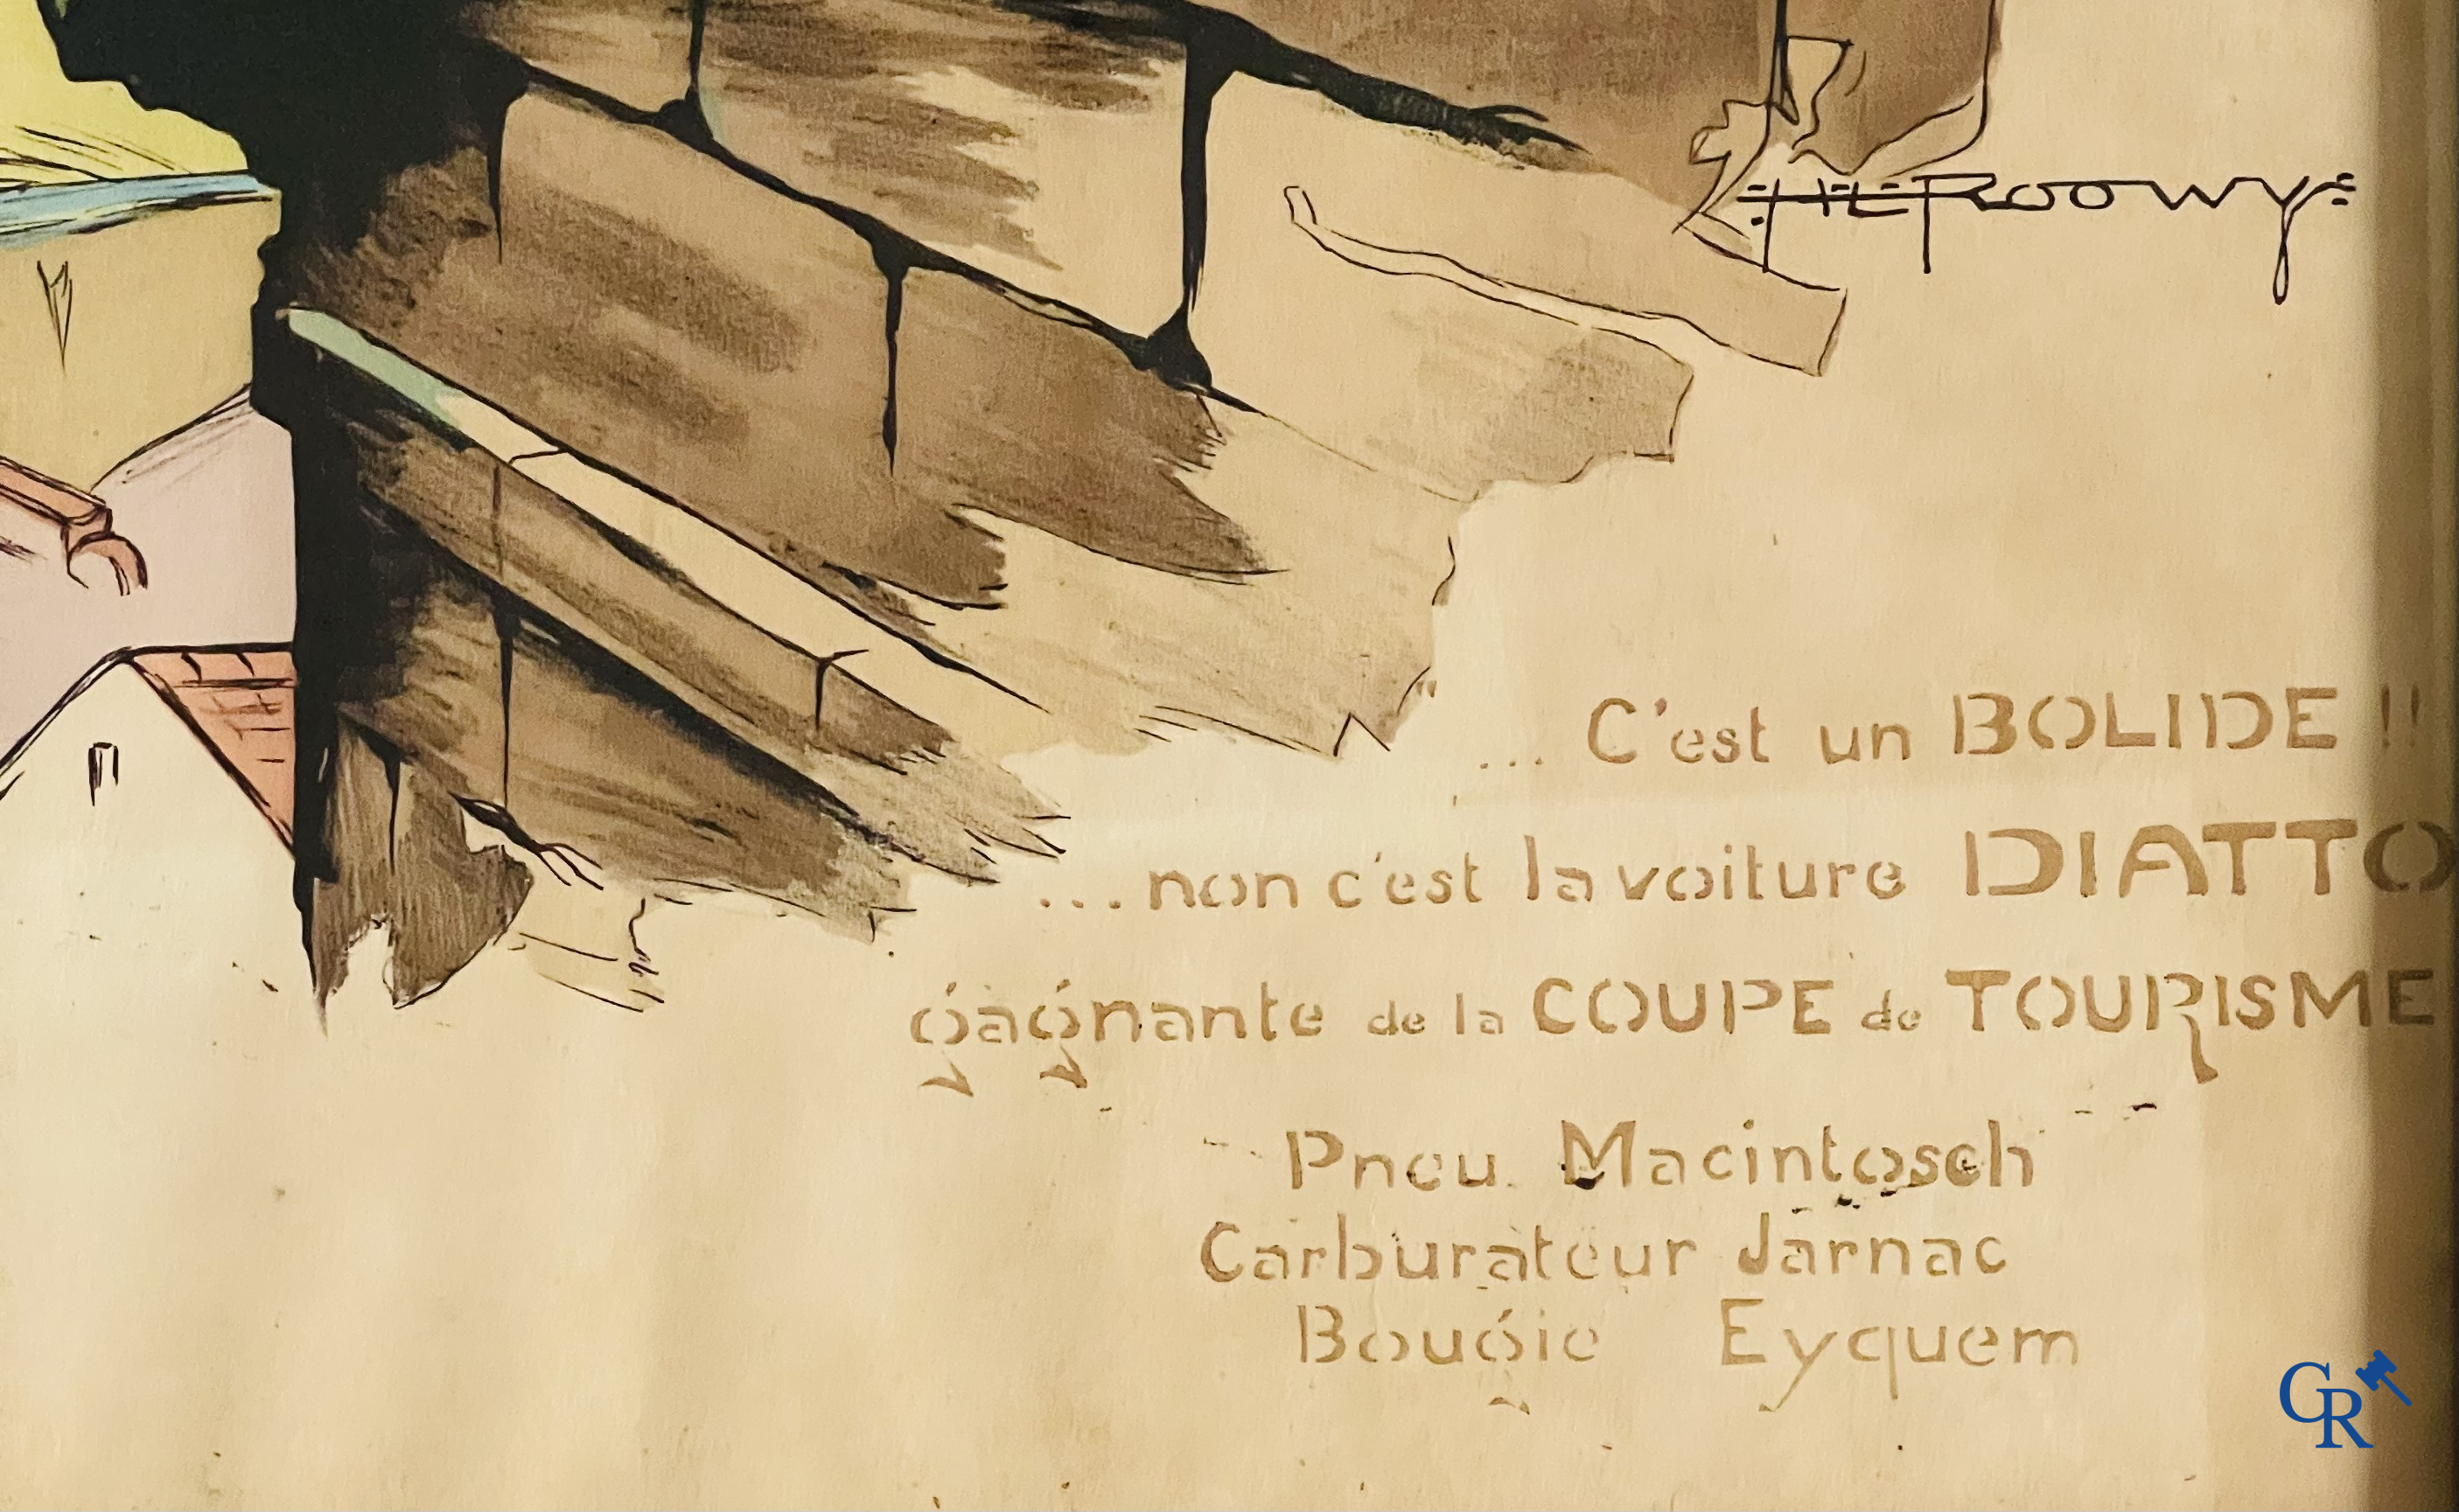 HEROOWY
... C'est un BOLIDE !!
... non c'est la voiture DIATTO
gagnante de la COUPE de TOURISME
Pneu Macintosch
Carburateur Jarnac
Bougie Eyquem
CR